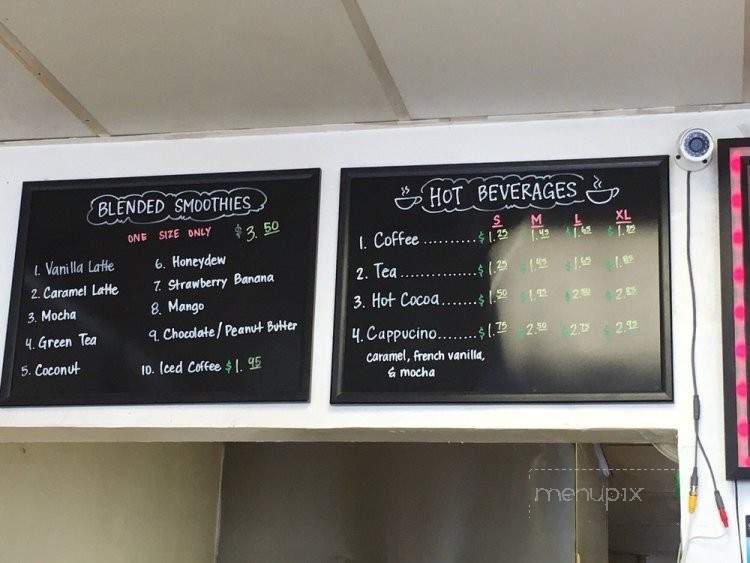 BLENDED SMOOTHIES
ONE SIZE ONLY $3.50
1. Vanilla Latte
2. Caramel Latte
3. Mocha
4. Green Tea
5. Coconut
6. Honeydew
7. Strawberry Banana
8. Mango
9. Chocolate/Peanut Butter
10. Iced Coffee $1.95
HOT BEVERAGES
S M L XL
1. Coffee..........$1.25 1.45 $1.65 $1.85
2. Tea..............$1.25 $1.45 $1.65 $1.85
3. Hot Cocoa.......$1.50 $1.95 $2.50 $2.85
4. Cappucino........$1.75 $2.50 $2.75 $2.95
caramel, french vanilla,
& mocha
menupix